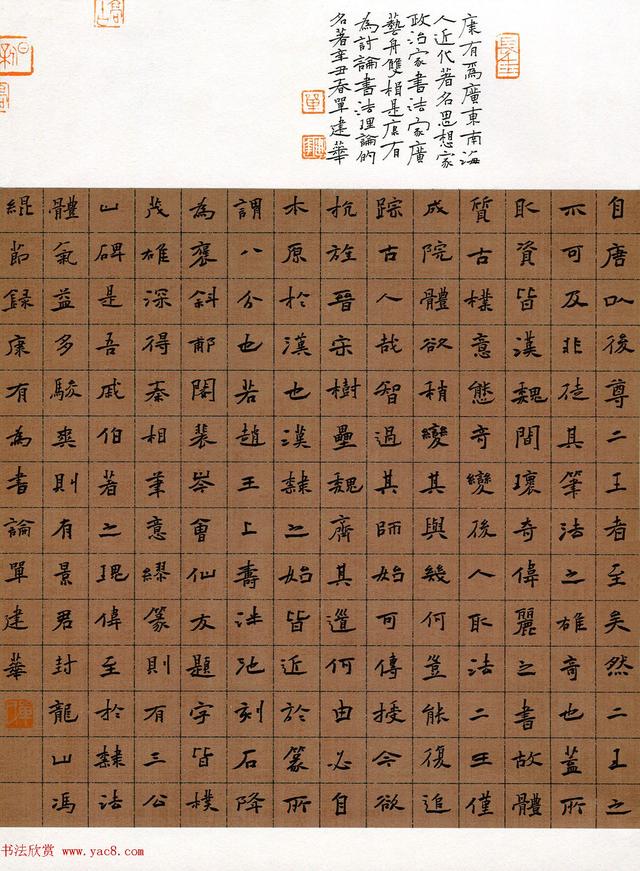 康有為廣東南海
人近代著名思想家
政治家書法家廣
藝舟雙楫是康有
為討論書法理論的
名著辛丑春單建華
自唐以後尊二王者至矣然二王之
不可及非徒其筆法之雄奇也蓋所
取資皆漢魏間瓌奇偉麗之書故體
質古樸意態奇變後人取法二王僅
成院體欲稍變其與幾何豈能復追
踪古人哉智過其師始可傳授今欲
抗旌晉宋樹壘魏齊其道何由必自
木原於漢也漢隸之始皆近於篆所
謂八分也若趙王上壽泮池刻石降
為褒斜郙閣裴岑會仙友題字皆樸
茂雄深得秦相筆意繆篆則有三公
山碑是吾戚伯著之瑰偉至於隸法
體氣益多駿爽則有景君封龍山馮
緄節錄康有為書論單建華
书法欣赏 www.yac8.com